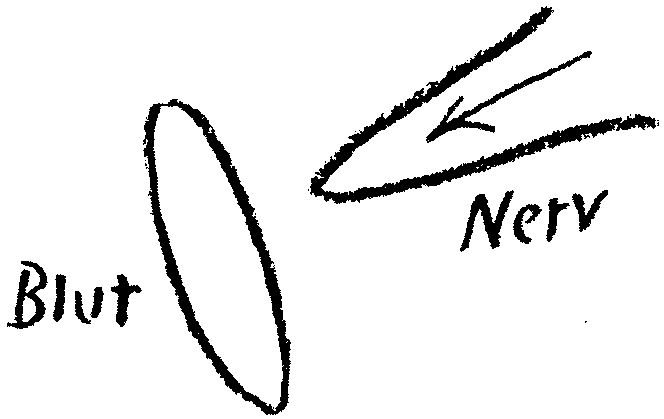 Nerv
Blut